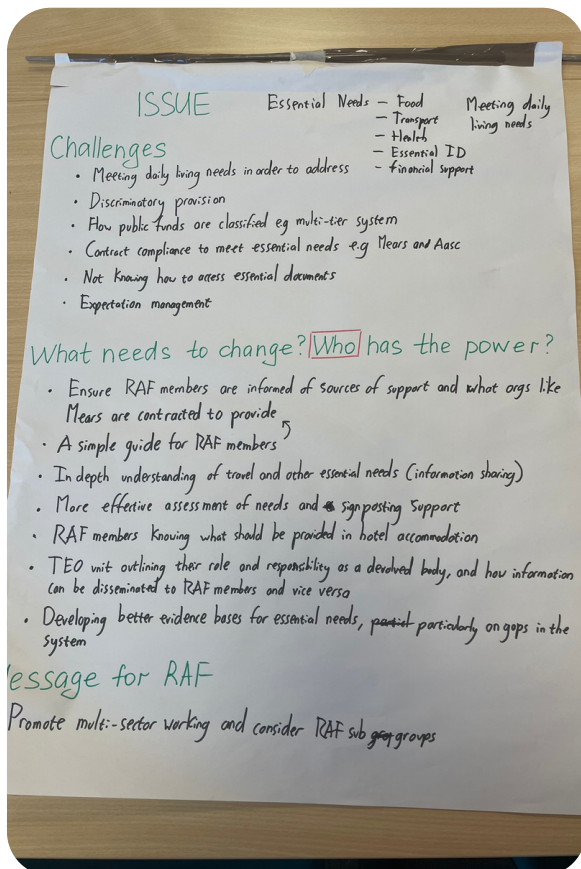 ISSUE
Essential Needs – Food
– Transport
– Health
– Essential ID
– financial support
Meeting daily
living needs
Challenges
• Meeting daily living needs in order to address
• Discriminatory provision
• How public funds are classified eg multi-tier system
• Contract compliance to meet essential needs e.g Mears and Aasc
• Not knowing how to access essential documents
• Expectation management
What needs to change? Who has the power?
• Ensure RAF members are informed of sources of support and what orgs like
Mears are contracted to provide
• A simple guide for RAF members
• In depth understanding of travel and other essential needs (information sharing)
• More effective assessment of needs and signposting support
• RAF members knowing what should be provided in hotel accommodation
• TEO unit outlining their role and responsibility as a devolved body, and how information
can be disseminated to RAF members and vice versa
• Developing better evidence bases for essential needs, particularly on gaps in the
system
essage for RAF
Promote multi-sector working and consider RAF sub groups